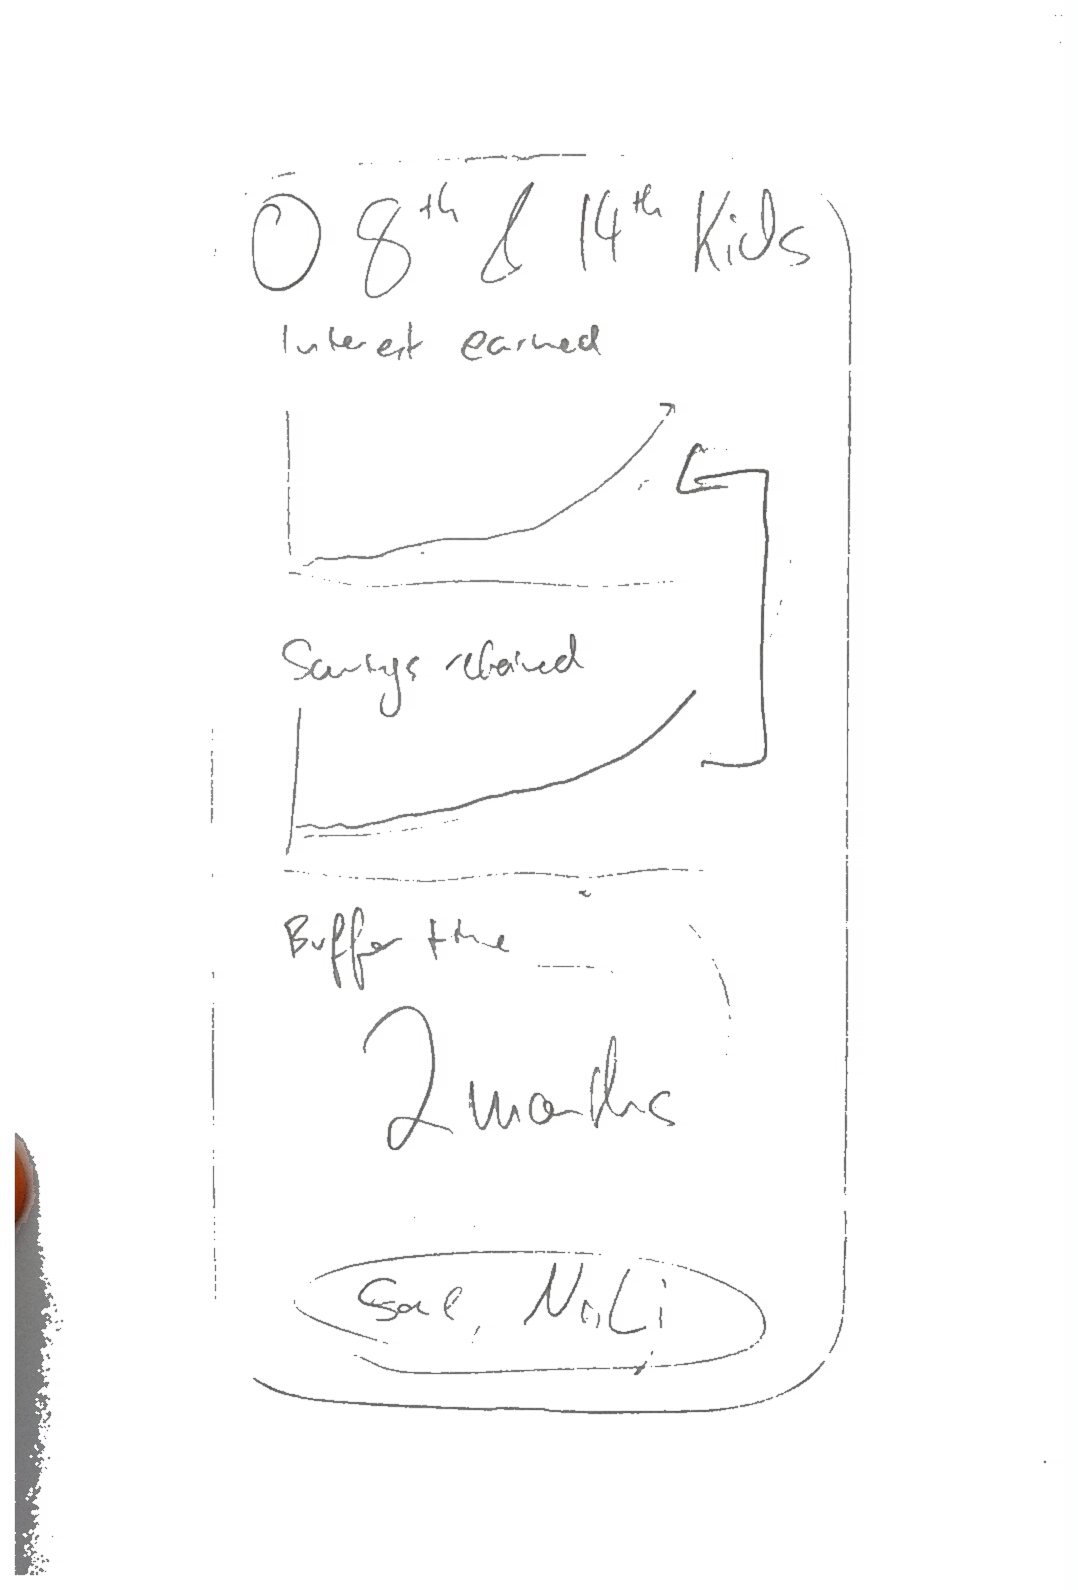 8th & 14th Kids
Interest earned
Savings retained
Buffer time
2 months